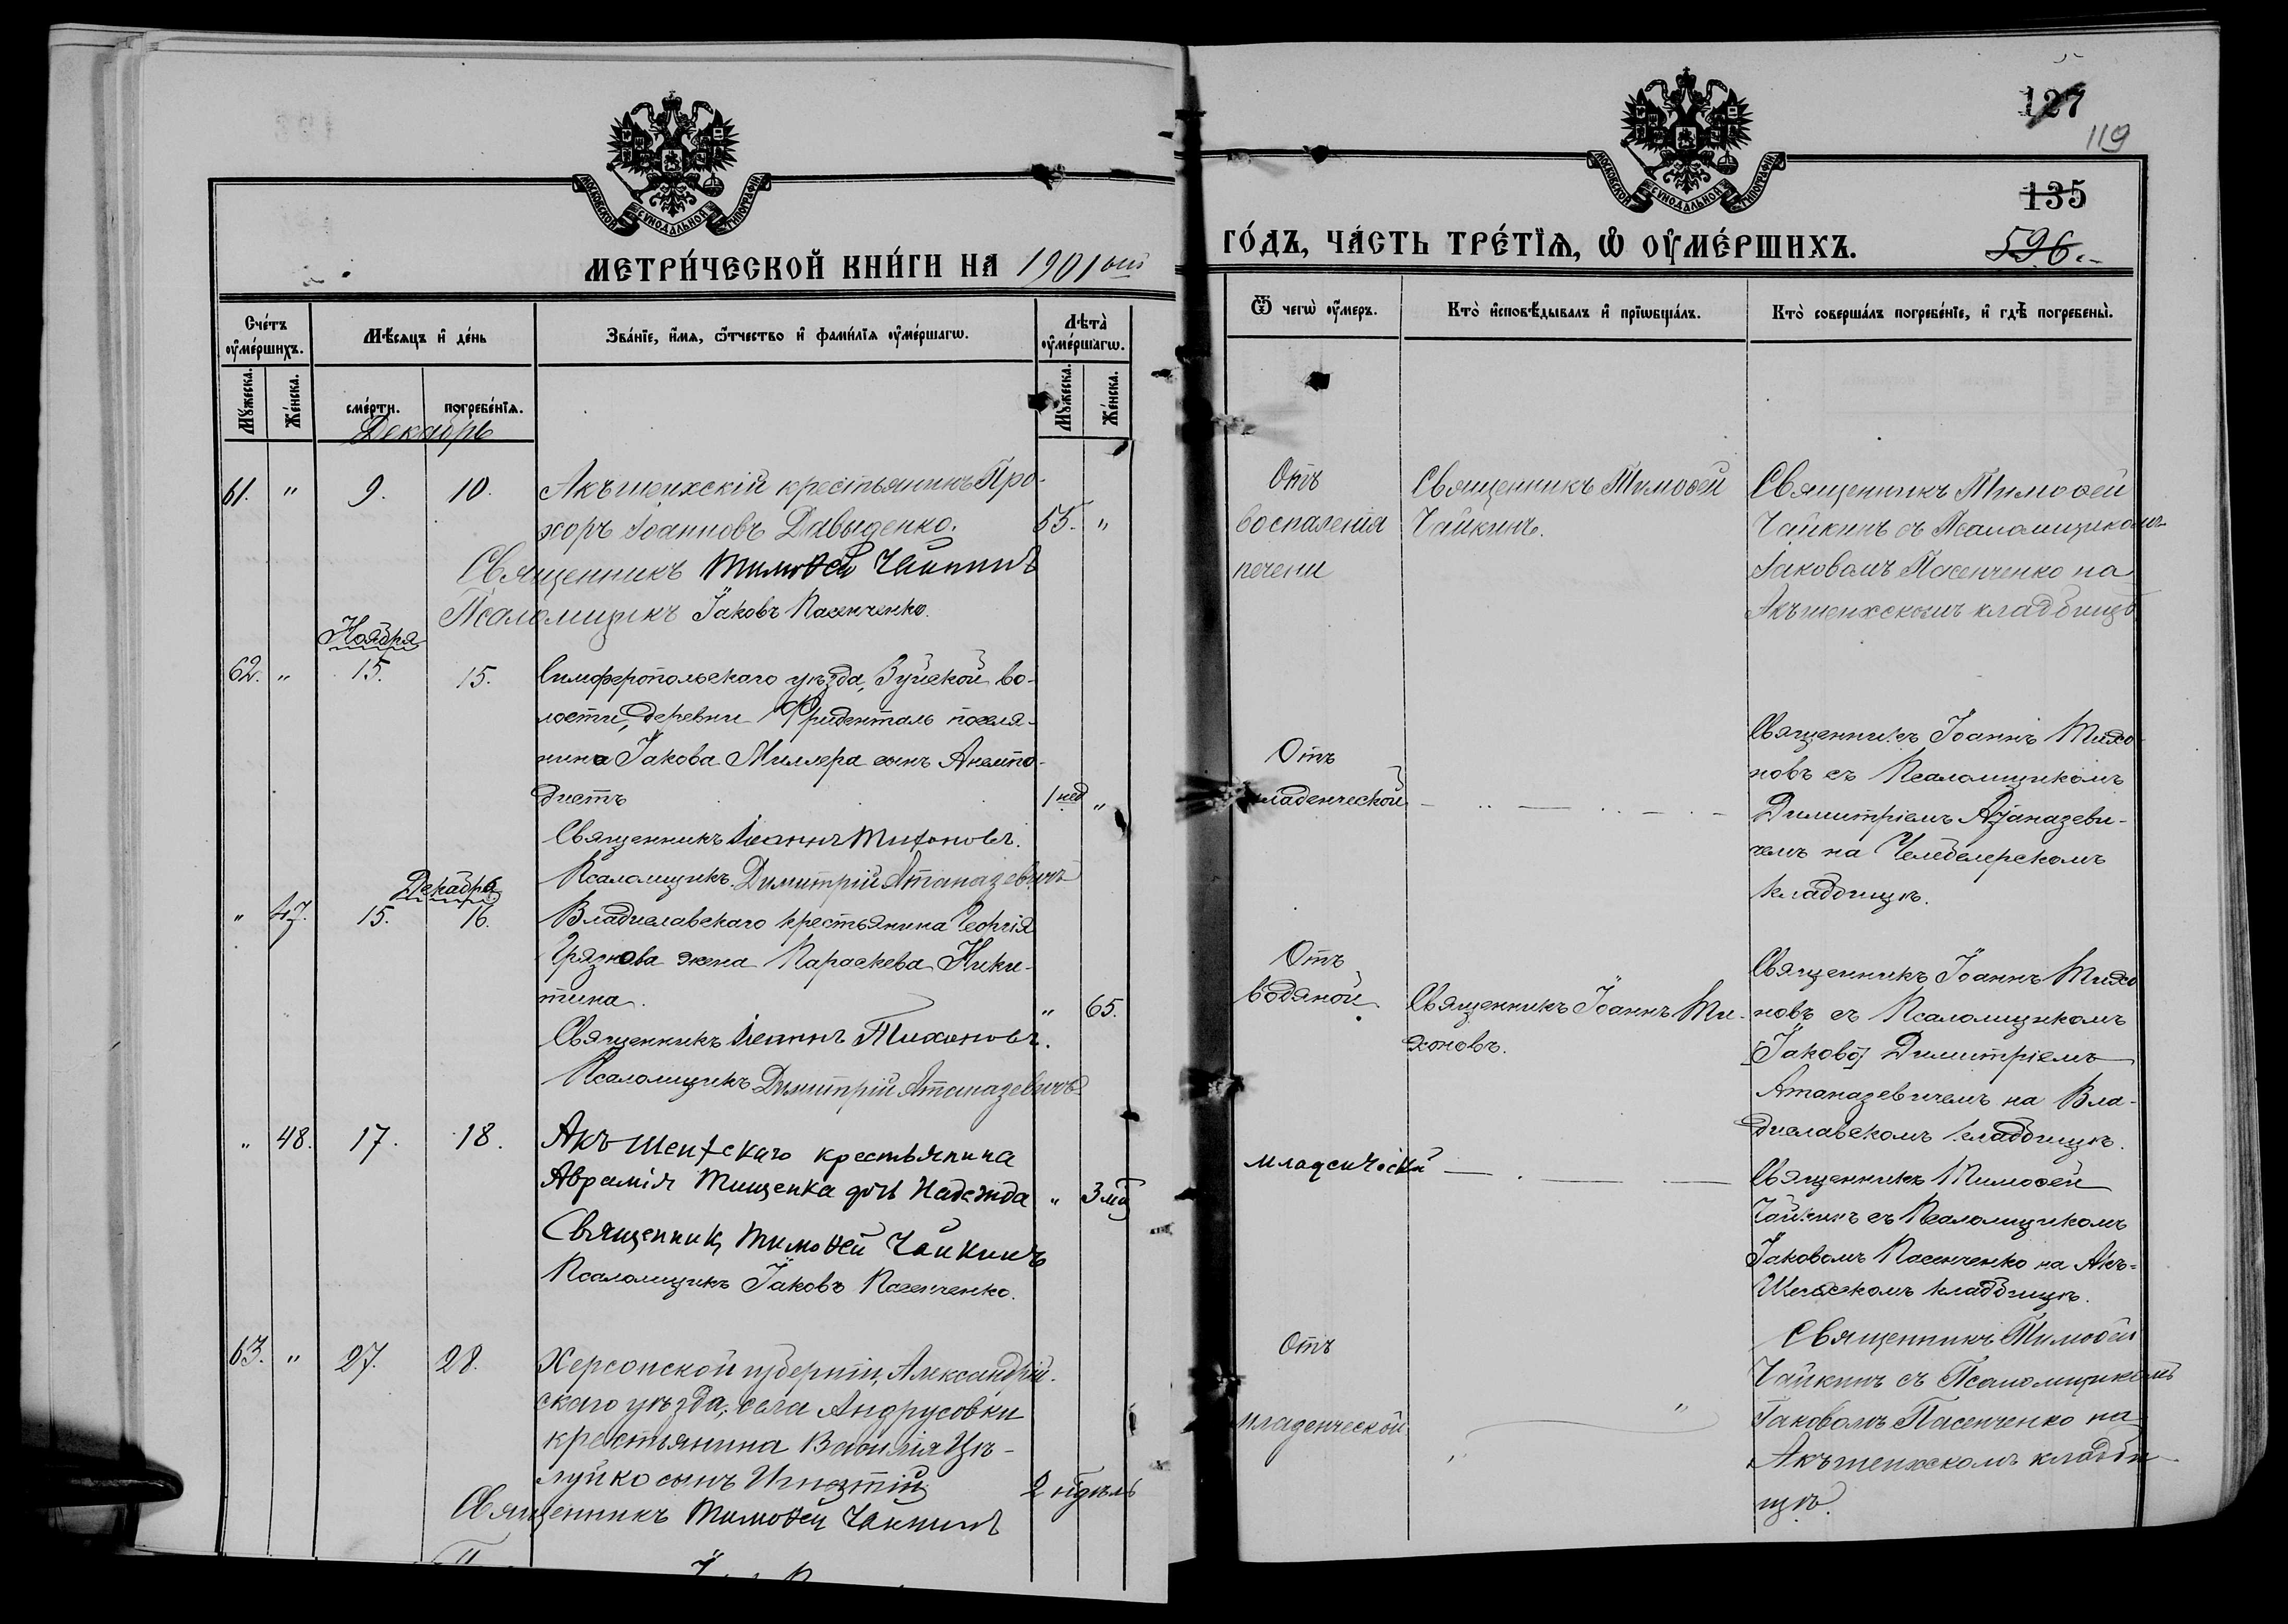 127
119
135
596.
МОСКОВСКОЙ СѴНОДАЛЬНОЙ ТИПОГРАФІИ
МОСКОВСКОЙ СѴНОДАЛЬНОЙ ТИПОГРАФІИ
МЕТРИ́ЧЕСКОЙ КНИ́ГИ НА 1901 ый
ГО́ДЪ, ЧА́СТЬ ТРЕ́ТІѦ, Ѡ ОУ҆МЕ́РШИХЪ.
Сче́тъ оу҆ме́ршихъ.
Мѣ́сѧцъ и҆ де́нь
Зва́нїе, и҆́мѧ, ѻ҆́тчество и҆ фами́лїѧ оу҆ме́ршагѡ.
Лѣта̀ оу҆ме́ршагѡ.
Ѿ чегѡ̀ оу҆́меръ.
Кто̀ и҆сповѣ́дывалъ и҆ прїѡбща́лъ.
Кто̀ соверша́лъ погребе́нїе, и҆ гдѣ̀ погребены̀.
Мꙋ́жеска.
Же́нска.
сме́рти.
погребе́нїѧ.
Мꙋ́жеска.
Же́нска.
Декабрь
61. " 9. 10. Акъшеихскій крестьянинъ Про-
хоръ Іоанновъ Давыденко. 55. "
Священникъ Тимоѳей Чайкинъ
Псаломщикъ Іаковъ Пасенченко.
Отъ
воспаленія
печени
Священникъ Тимоѳей
Чайкинъ.
Священникъ Тимоѳей
Чайкинъ съ Псаломщикомъ
Іаковомъ Пасенченко на
Акъшеихскомъ кладбищѣ
Ноября
62. " 15. 15. Симферопольскаго уѣзда, Зуйской во-
лости, деревни Фриденталь поселя-
нина Іакова Миллера сынъ Анемпо-
дистъ 1 нед "
Священникъ Іоаннъ Тихоновъ.
Псаломщикъ Димитрій Атаназевичъ
Отъ
младенческой
Священникъ Іоаннъ Тихо-
новъ съ Псаломщикомъ
Димитріемъ Атаназеви-
чемъ на
кладбищѣ.
Декабря
" 47. 15. 16. Владиславскаго крестьянина Георгія
Грязнова жена Параскева Ники-
тина. " 65.
Священникъ Іоаннъ Тихоновъ.
Псаломщикъ Димитрій Атаназевичъ
Отъ
водяной.
Священникъ Іоаннъ Ти-
хоновъ.
Священникъ Іоаннъ Тихо
новъ съ Псаломщикомъ
[Іаково] Димитріемъ
Атаназевичемъ на Вла-
диславскомъ кладбищѣ.
" 48. 17. 18. Акъ-шеихскаго крестьянина
Аврамія Тищенка дочь Надежда " 3 мц
Священникъ Тимоѳей Чайкинъ
Псаломщикъ Іаковъ Пасенченко.
младенческой
Священникъ Тимоѳей
Чайкинъ съ Псаломщикомъ
Іаковомъ Пасенченко на Акъ-
Шеихскомъ кладбищѣ.
63. " 27. 28. Херсонской губерніи, Александрій-
скаго уѣзда, села Андрусовки
крестьянина Василія Цѣ-
луйко сынъ Игнатій 2 недѣль
Священникъ Тимоѳей Чайкинъ
Отъ
младенческой
Священникъ Тимоѳей
Чайкинъ съ Псаломщикомъ
Іаковомъ Пасенченко на
Акъшеихскомъ кладби-
щѣ.